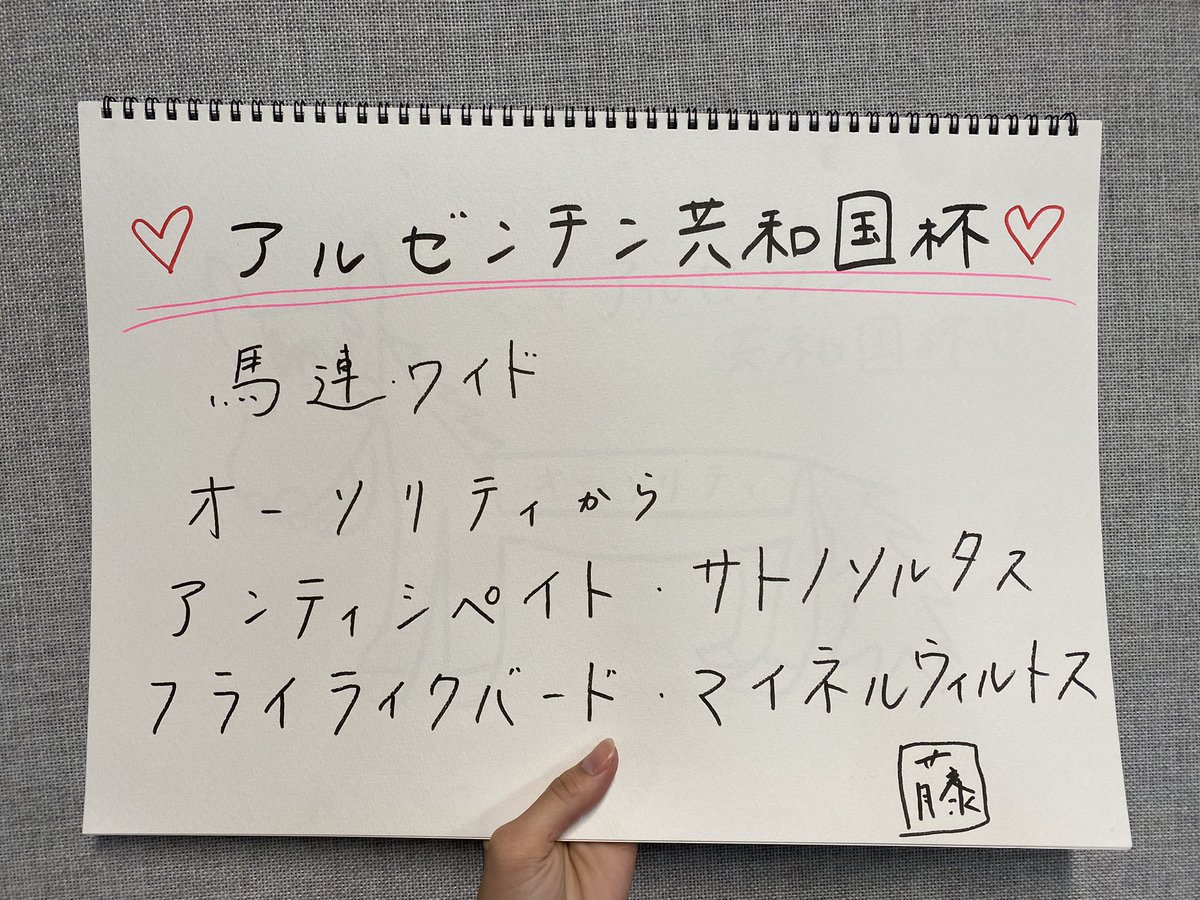 ♡アルゼンチン共和国杯♡
馬連・ワイド
オーソリティから
アンティシペイト・サトノソルタス
フライライクバード・マイネルウィルトス
藤